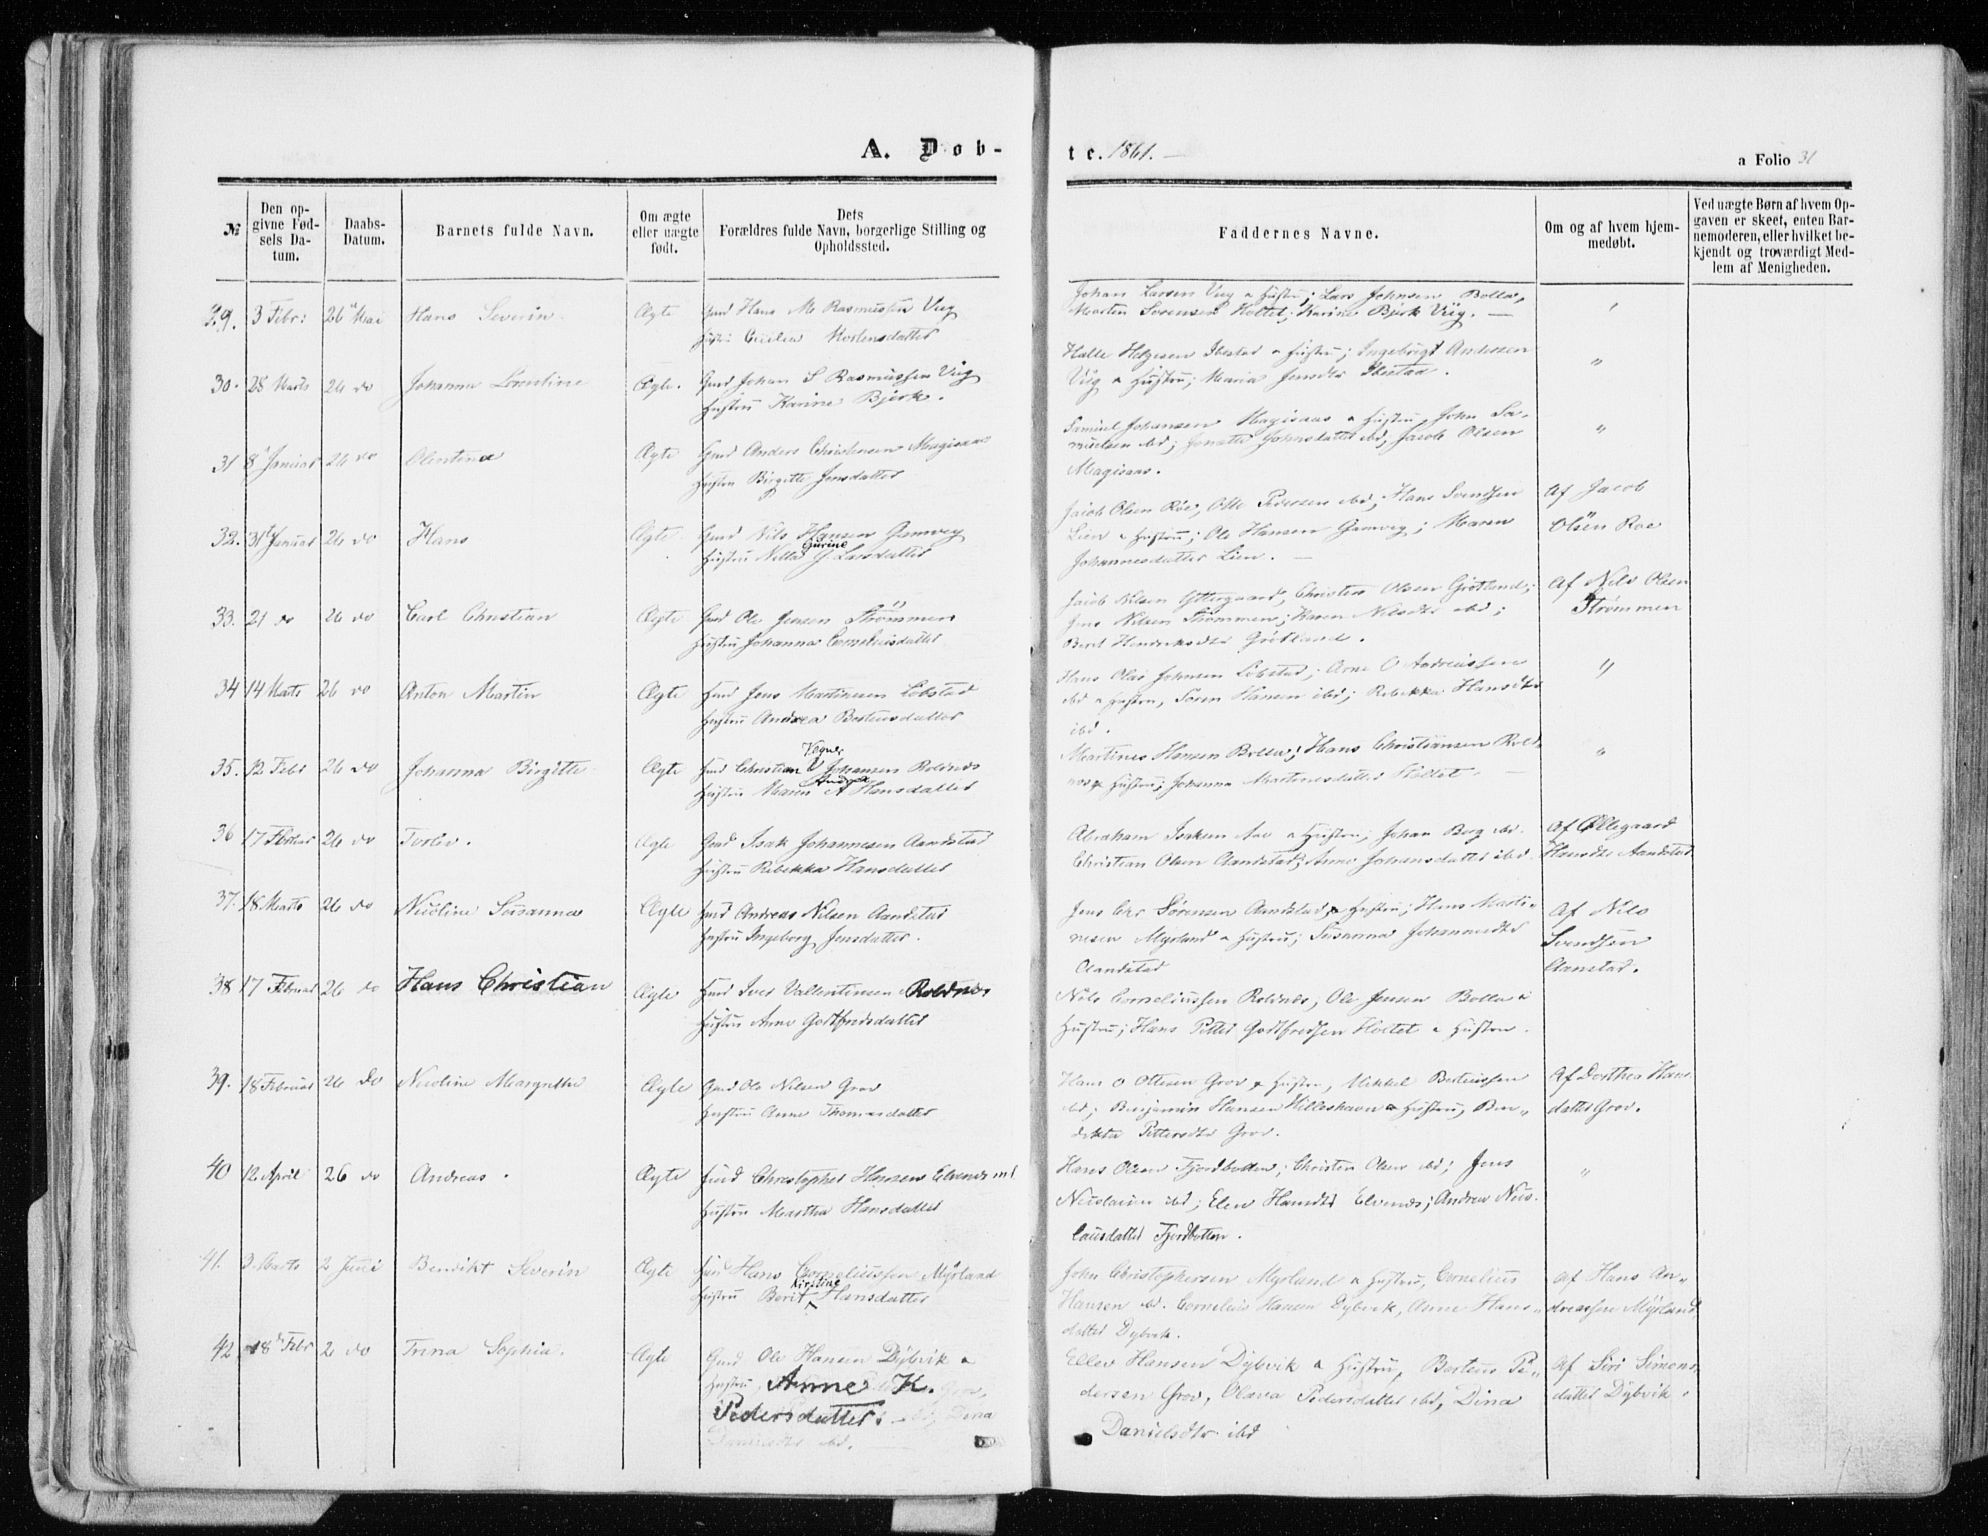 A. Døb-
te. 1861. —
a Folio 31
№
Den op-
givne Fød-
sels Da-
tum.
Daabs-
Datum.
Barnets fulde Navn.
Om ægte
eller uægte
født.
Dets
Forældres fulde Navn, borgerlige Stilling og
Opholdssted.
Faddernes Navne.
Om og af hvem hjem-
medøbt.
Ved uægte Børn af hvem Op-
gaven er skeet, enten Bar-
nemoderen, eller hvilket be-
kjendt og troværdigt Med-
lem af Menigheden.
29. 3 Febr: 26 Mai Hans Severin Ægte Gmd Hans M. Rasmussen Viig
Hustru Mortensdatter
Johan Larsen Viig & Hustru; Lars Johnsen Bolla,
Morten Sørensen Holtet; Karine Bjerk Viig. —
30. 28 Marts 26 do Johanna Ægte. Gmd Johan S Rasmussen Viig
Hustru Karine Bjerk.
Halle Helgesen Ibestad & Hustru; Ingebrigt Andersen
Viig & Hustru; Maria Jensdtr Ibestad. "
31 8 Januar 26 do Ægte Gmd Anders Christensen Magisaas
Hustru Birgitte Jensdatter
Samuel Johansen Magisaas & Hustru, John Sa-
muelsen ibd; Johnsdatter ibd, Jacob Olsen
Magisaas. "
32. 31te Januar 26 do Hans Ægte Gmd Nils Hansen Gamveg
Gurine
Hustru G Larsdatter
Jacob Olsen Röe, Olle Pedersen ibd, Hans Svendsen
Lien & Hustru; Ole Hansen Gamveg; Maren
Johannesdatter Lien. —
Af Jacob
Olsen Roe
33. 21 do 26 do Carl Christian Ægte Gmd Ole Jensen Strömmen
Hustru Johanna Corneliusdatter
Jacob Nilsen Yttergaard, Christen Olsen Grötland;
Jens Nilsen Strömmen; Karen Nilsdtr ibd;
Berit Hendriksdtr Grötland.
Af Nils Olsen
Strømmen
34 14 Marts 26 do Anton Martin Ægte Jens Martinsen Löbstad
Hustru Andrea Berteusdatter
Hans Olai Johnsen Löbstad; Arne O Andreassen
ibd & Hustru, Søren Hansen ibd; Rebekka Hansdtr
ibd. "
35. 12 Febr 26 do Johanna Birgitte Ægte Vegner
Christian V Johansen Roldnes
Andrea
Hustru Maren A Hansdatter
Martines Hansen Bolla; Hans Christiansen Rold-
nes & Hustru; Johanna Martinesdatter Holtet. — "
36 17 Februar 26 do Ægte Gmd Isak Johannesen Aandstad
Hustru Rebekka Hansdatter
Abraham Isaksen Aae & Hustru; Johan Berg ibd.
Christian Olsen Aandstad; Anne Johansdatter ibd.
Af Ollegaard
Hansdtr Aandstad
37. 18 Marts 26 do Nicoline Susanna Ægte Andreas Nilsen Aandstad
Hustru Ingeborg Jensdatter.
Jens Chr Sørensen Aandstad & Hustru; Hans Marti-
nesen Myrland & Hustru; Susanna Johannesdtr
Aandstad
Af Nils
Svendsen
Aanstad.
38 17 Februar 26 do Hans Christian Ægte Iver Vallentinsen Roldnes
Hustru Anne Godtfredsdatter
Nils Corneliussen Roldnes, Ole Jensen Bolla &
Hustru; Hans Petter Godtfredsen Holtet & Hustru.
39. 18 Februar 26 do Nicoline Margrethe Ægte Gmd Ole Nilsen Grov
Hustru Anne Thomasdatter
Hans O Ottesen Grov & Hustru, Mikkel Berteussen
ibd; Benjamin Hansen Hilleshavn & Hustru; Ben-
dikta Pettersdtr Grov.
Af Dorthea Hans-
datter Grov.
40 12 April 26 do Andreas. Ægte Christopher Hansen Elvenes
Hustru Martha Hansdatter
Hans Olsen Fjordbotten; Christen Olsen ibd; Jens
Nicolaisen ibd; Elen Hansdtr Elvenes; Andrea Nico-
lausdatter Fjordbotten. "
41. 3 Marts 2 Juni Bendikt Severin Ægte Hans Corneliussen Myrland
Kirstine
Hustru Berit Hansdatter
John Christophersen Myrland & Hustru, Cornelius
Hansen ibd. Cornelius Hansen Dybvik, Anne Hans-
datter Dybvik.
Af Hans An-
dreassen Myrland
42 18 Febr 2 do Trina Sophia. Ægte Gmd Ole Hansen Dybvik &
Hustru Anne K. Grov,
Pedersdatter. Dina
Danielsdtr ibd.
Ellev Hansen Dybvik & Hustru, Berteus Pe-
dersen Grov, Olava Pedersdatter ibd, Dina
Danielsdtr ibd
Af Siri Simons-
datter Dybvik.